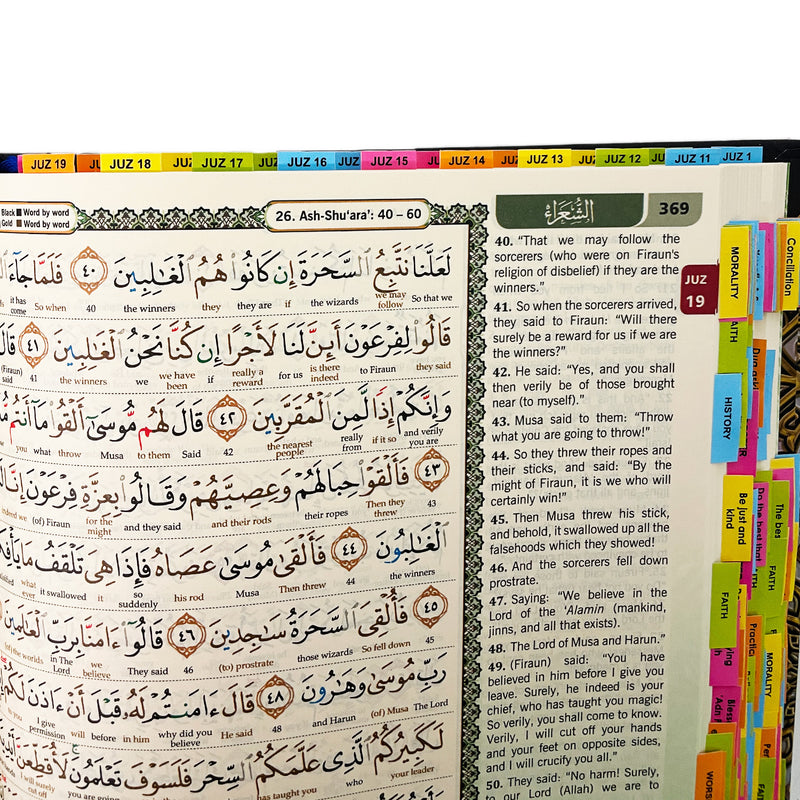 JUZ 19
JUZ 18
JUZ
JUZ 17
JUZ
JUZ 16
JUZ
JUZ 15
JUZ 14
JUZ
JUZ 13
JUZ
JUZ 12
JUZ 11
JUZ 1
Black Word by word
Gold Word by word
26. Ash-Shu‘ara’: 40 – 60
الشُّعَرَاءُ
369
JUZ
19
لَعَلَّنَا نَتَّبِعُ ٱلسَّحَرَةَ إِن كَانُوا۟ هُمُ ٱلْغَـٰلِبِينَ ٤٠ فَلَمَّا جَآءَ
come So when 40 the winners they they are if the wizards we may follow So that we
قَالُوا۟ لِفِرْعَوْنَ أَئِنَّ لَنَا لَأَجْرًا إِن كُنَّا نَحْنُ ٱلْغَـٰلِبِينَ ٤١
(Firaun) said 41 the winners we we have been if really a reward for us is there indeed to Firaun they said
وَإِنَّكُمْ إِذًا لَّمِنَ ٱلْمُقَرَّبِينَ ٤٢ قَالَ لَهُم مُّوسَىٰٓ أَلْقُوا۟ مَآ أَنتُم
you what throw Musa to them Said 42 the nearest people really from if it so and verily you are
٤٣ فَأَلْقَوْا۟ حِبَالَهُمْ وَعِصِيَّهُمْ وَقَالُوا۟ بِعِزَّةِ فِرْعَوْنَ إِنَّا
indeed we (of) Firaun for the might and they said and their rods their ropes Then they threw 43
ٱلْغَـٰلِبُونَ ٤٤ فَأَلْقَىٰ مُوسَىٰ عَصَاهُ فَإِذَا هِىَ تَلْقَفُ مَا
what ever it swallowed it so suddenly his rod Musa Then threw 44 the winners
٤٥ فَأُلْقِىَ ٱلسَّحَرَةُ سَـٰجِدِينَ ٤٦ قَالُوٓا۟ ءَامَنَّا بِرَبِّ ٱلْعَـٰلَمِينَ
(of) the worlds in The Lord we believe They said 46 (to) prostrate those wizards So fell down 45
رَبِّ مُوسَىٰ وَهَـٰرُونَ ٤٨ قَالَ ءَامَنتُمْ لَهُۥ قَبْلَ أَنْ ءَاذَنَ لَكُمْ
I give permission will before in him why did you believe He said 48 and Harun (of) Musa The Lord
لَكَبِيرُكُمُ ٱلَّذِى عَلَّمَكُمُ ٱلسِّحْرَ فَلَسَوْفَ تَعْلَمُونَ لَأُقَطِّعَنَّ
has taught you who your leader
40. “That we may follow the
sorcerers (who were on Firaun's
religion of disbelief) if they are the
winners.”
41. So when the sorcerers arrived,
they said to Firaun: “Will there
surely be a reward for us if we are
the winners?”
42. He said: “Yes, and you shall
then verily be of those brought
near (to myself).”
43. Musa said to them: “Throw
what you are going to throw!”
44. So they threw their ropes and
their sticks, and said: “By the
might of Firaun, it is we who will
certainly win!”
45. Then Musa threw his stick,
and behold, it swallowed up all the
falsehoods which they showed!
46. And the sorcerers fell down
prostrate.
47. Saying: “We believe in the
Lord of the ‘Alamin (mankind,
jinns, and all that exists).
48. The Lord of Musa and Harun.”
49. (Firaun) said: “You have
believed in him before I give you
leave. Surely, he indeed is your
chief, who has taught you magic!
So verily, you shall come to know.
Verily, I will cut off your hands
and your feet on opposite sides,
and I will crucify you all.”
50. They said: “No harm! Surely,
to our Lord (Allah) we are to
MORALITY
Conciliation
HISTORY
Be just and
kind
Do the best that
The bes
FAITH
FAITH
MORALITY